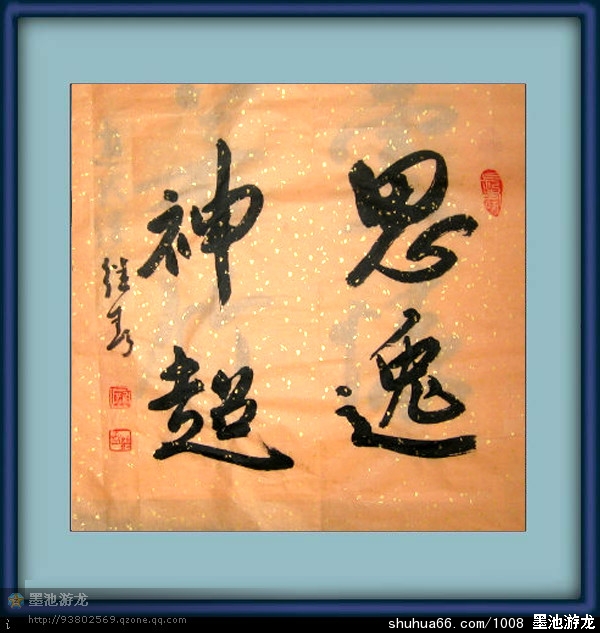 思逸
神超
墨池游龙
http://93802569.qzone.qq.com
shuhua66.com/1008 墨池游龙